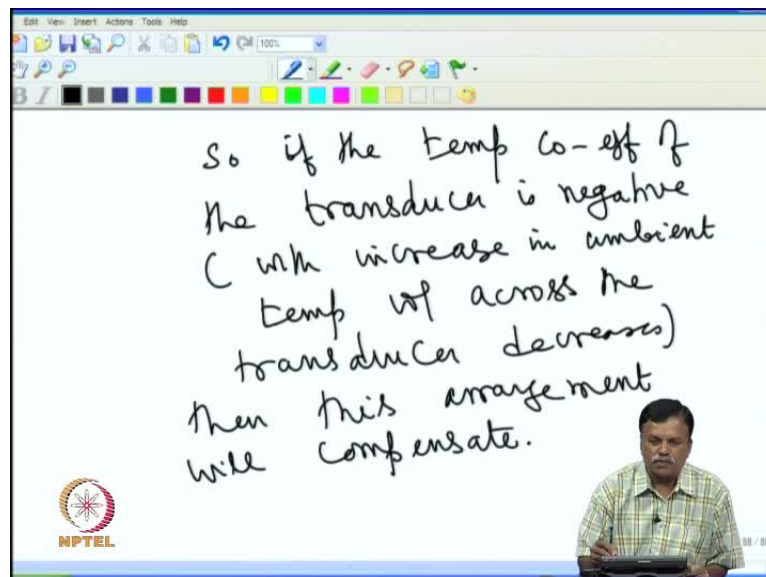 Edit View Insert Actions Tools Help
100%
B I
So if the temp co-eff of
the transducer is negative
( with increase in ambient
temp vol across the
transducer decreases)
then this arrangement
will compensate.
NPTEL